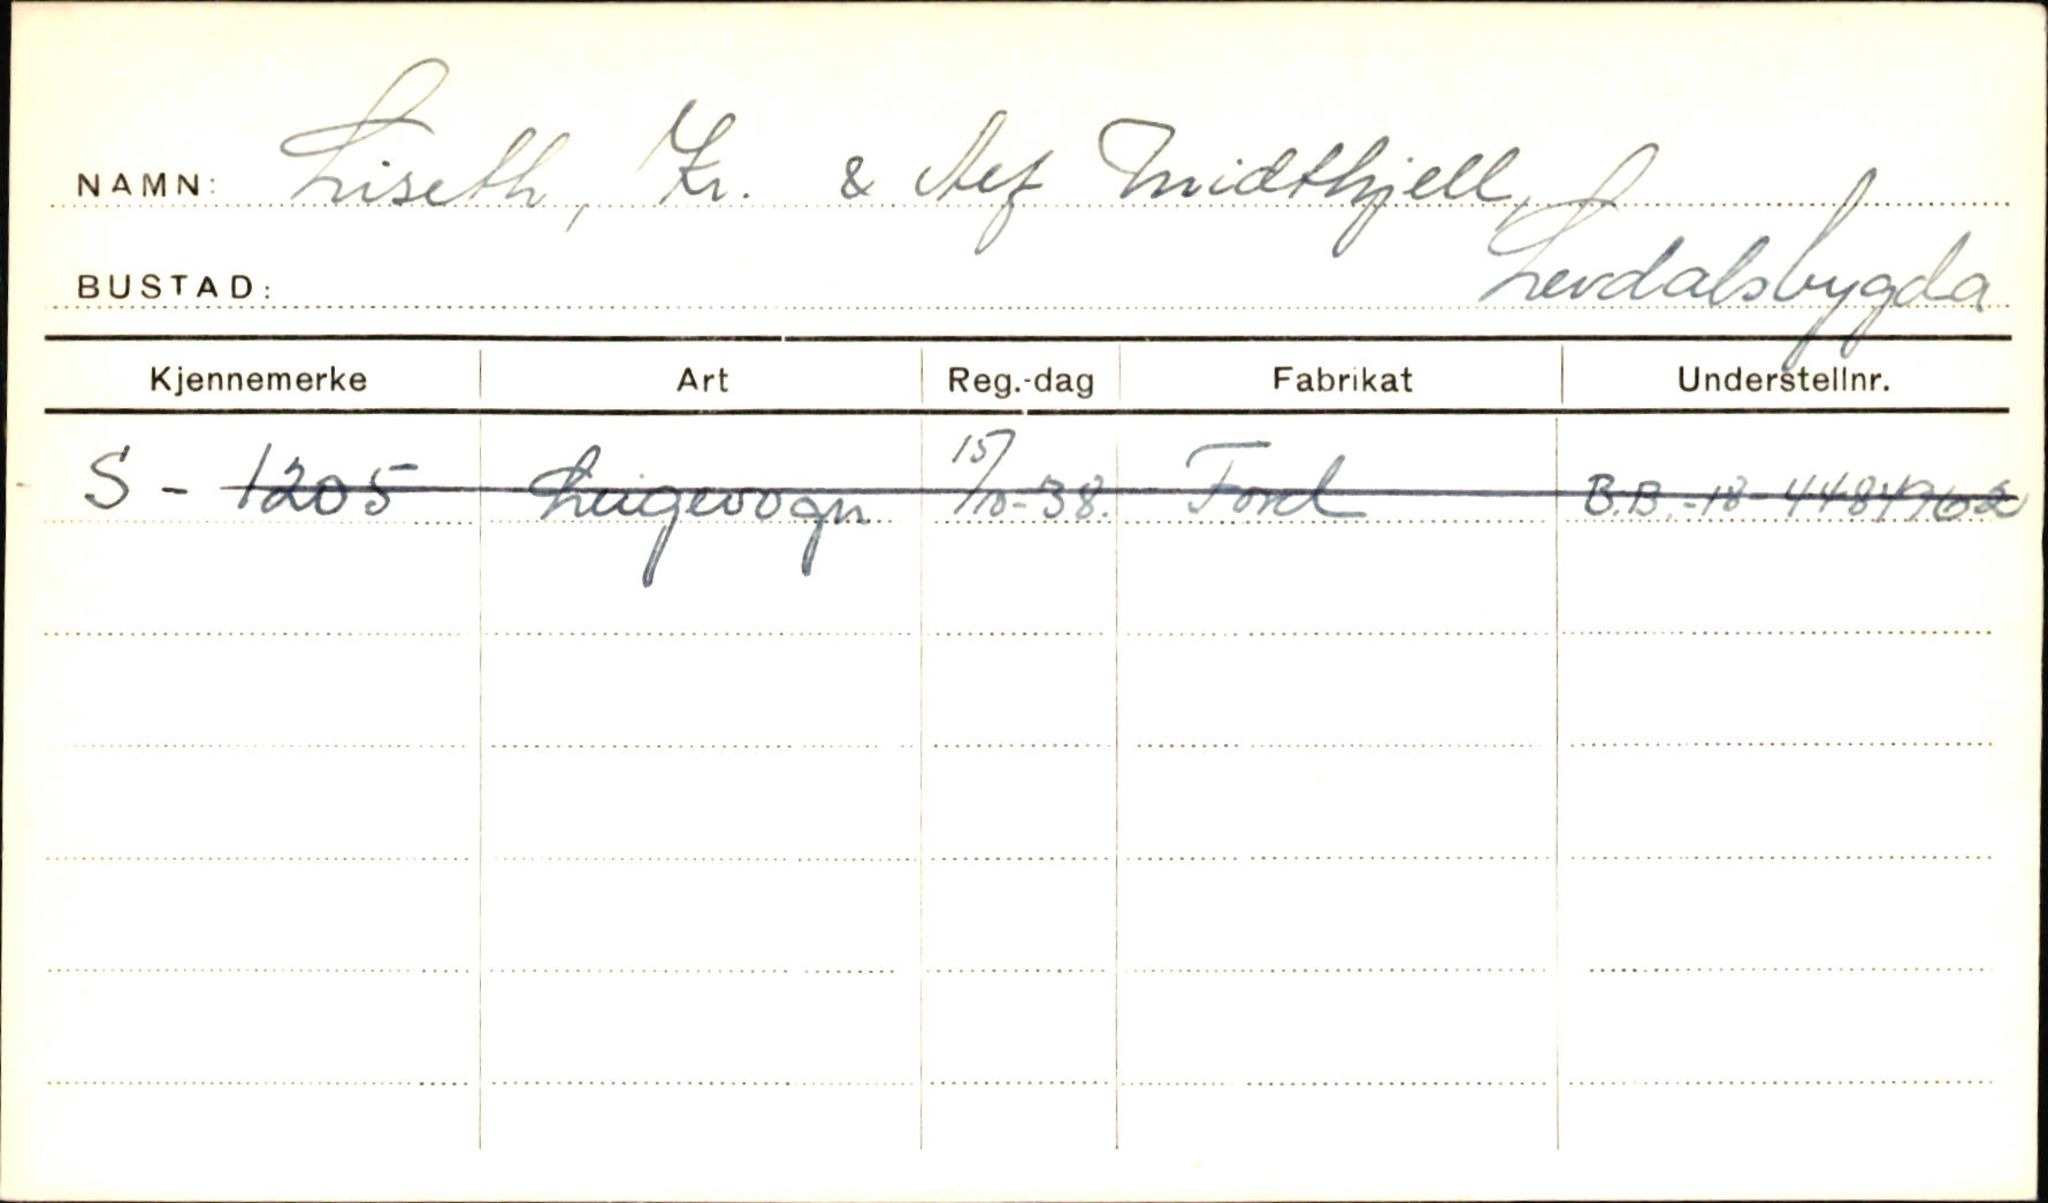 NAMN: Liseth, Kr. & Alf Midthjell,
BUSTAD: Levdalsbygda
Kjennemerke Art Reg.-dag Fabrikat Understellnr.
S - 1205 Leigevogn 15/10-38. Ford B.B.-18-